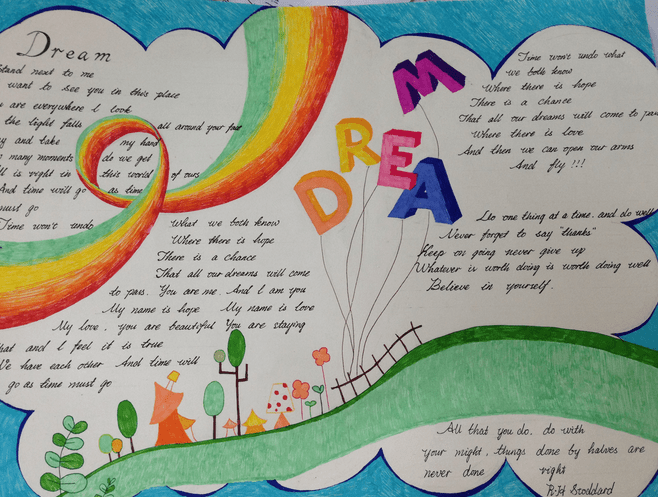 Dream
Stand next to me
want to see you in this place
are everywhere I look
the light falls all around your feet
and take my hand
many moments do we get
is right in this world of ours
And time will go as time
must go
Time won't undo
What we both know
Where there is hope
There is a chance
That all our dreams will come
to pass. You are me. And I am you
My name is hope My name is love
My love, you are beautiful You are staying
that and I feel it is true
We have each other And time will
go as time must go
DREAM
Time won't undo what
we both know
Where there is hope
There is a chance
That all our dreams will come to pass
Where there is love
And then we can open our arms
And fly!!!
Do one thing at a time. and do well
Never forget to say "thanks"
Keep on going never give up
Whatever is worth doing is worth doing well
Believe in yourself.
All that you do, do with
your might, things done by halves are
never done right
R·H Stoddard